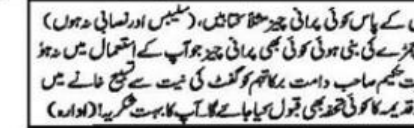 کے پاس کوئی پرانی چیز مثلاً کتابیں، (سلیبس اور نصابی نہ ہوں)
چمڑے کی بنی ہوئی کوئی بھی پرانی چیز جو آپ کے استعمال میں نہ ہو
حکیم صاحب دامت برکاتہم کو گفٹ کی نیت سے تسبیح خانے میں
کا کوئی تحفہ بھی قبول کیا جائے گا۔ آپ کا بہت شکریہ! (ادارہ)